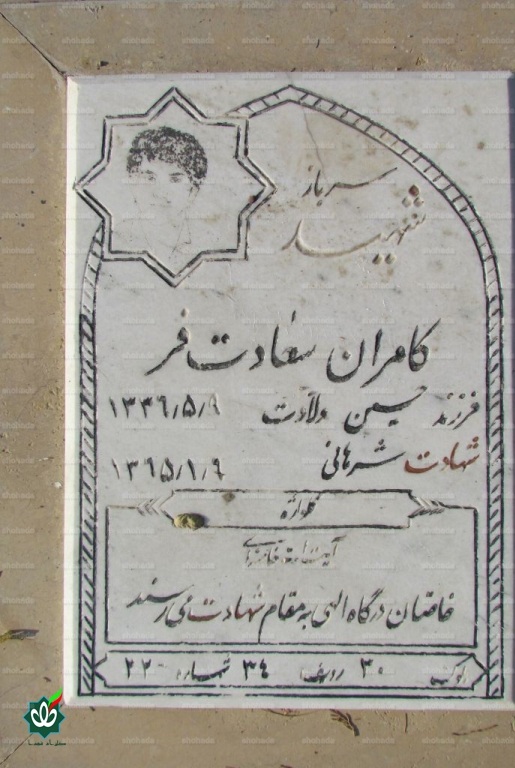 سرباز
شهید
کامران سعادت فر
فرزند حسین ولادت ۱۳۴۶/۵/۹
شهادت شرهانی ۱۳۶۵/۱/۹
گلواژه
آیت الله خامنه‌ای
خاصان درگاه الهی به مقام شهادت می رسند
بلوک ۳۰ ردیف ۳۴ شماره ۲۲
shohada